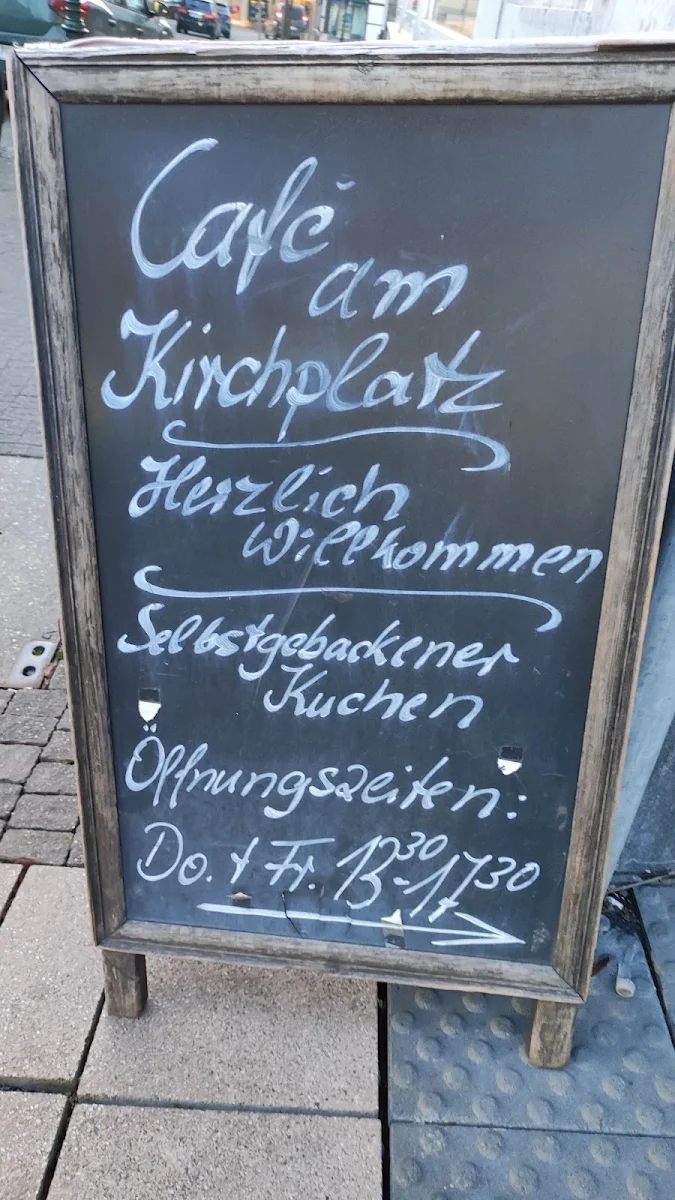 Café
am
Kirchplatz
Herzlich
Willkommen
Selbstgebackener
Kuchen
Öffnungszeiten:
Do. + Fr. 13³⁰-17³⁰